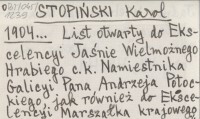 STOPIŃSKI Karol
1904... List otwarty do Eks-
celencyi Jaśnie Wielmożnego
Hrabiego c.k. Namiestnika
Galicyi Pana Andrzeja Potoc-
kiego, jak również do Eksce-
lencyi Marszałka krajowego